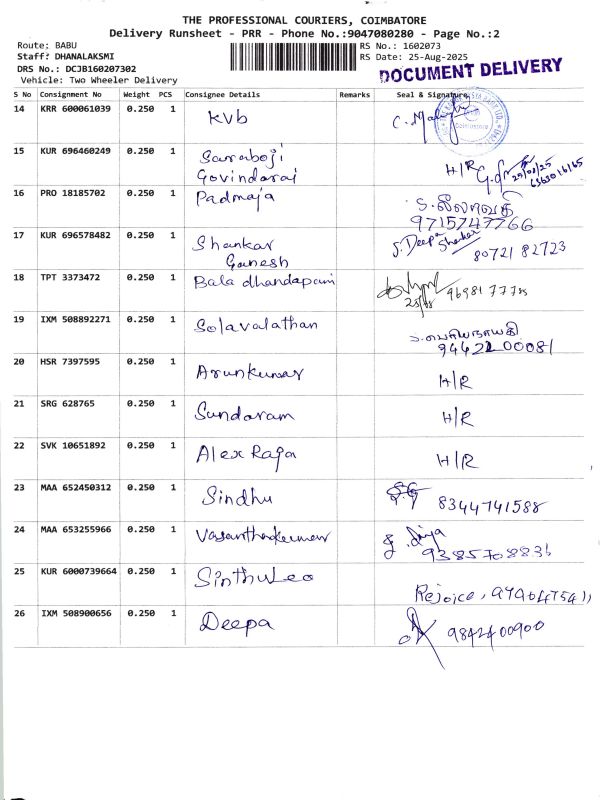 THE PROFESSIONAL COURIERS, COIMBATORE
Delivery Runsheet - PRR - Phone No.:9047080280 - Page No.:2
Route: BABU
RS No.: 1602073
Staff: DHANALAKSMI
RS Date: 25-Aug-2025
DRS No.: DCJB160207302
Vehicle: Two Wheeler Delivery
DOCUMENT DELIVERY
S No Consignment No Weight PCS Consignee Details Remarks Seal & Signature
14 KRR 600061039 0.250 1 KVb
15 KUR 696460249 0.250 1 Saraboji H/R
Govindaraj
16 PRO 18185702 0.250 1 Padmaja
9715747766
17 KUR 696578482 0.250 1 Shankar S. Deepa Shankar
Ganesh 80721 82723
18 TPT 3373472 0.250 1 Bala dhandapani
19 IXM 508892271 0.250 1 Solavalathan
94422 00081
20 HSR 7397595 0.250 1 Arunkumar H/R
21 SRG 628765 0.250 1 Sundaram H/R
22 SVK 10651892 0.250 1 Alex Raja H/R
23 MAA 652450312 0.250 1 Sindhu 8344741588
24 MAA 653255966 0.250 1 Vasanthakumar
25 KUR 6000739664 0.250 1 SinthuLeo
Rejoice,
26 IXM 508900656 0.250 1 Deepa 9842400900